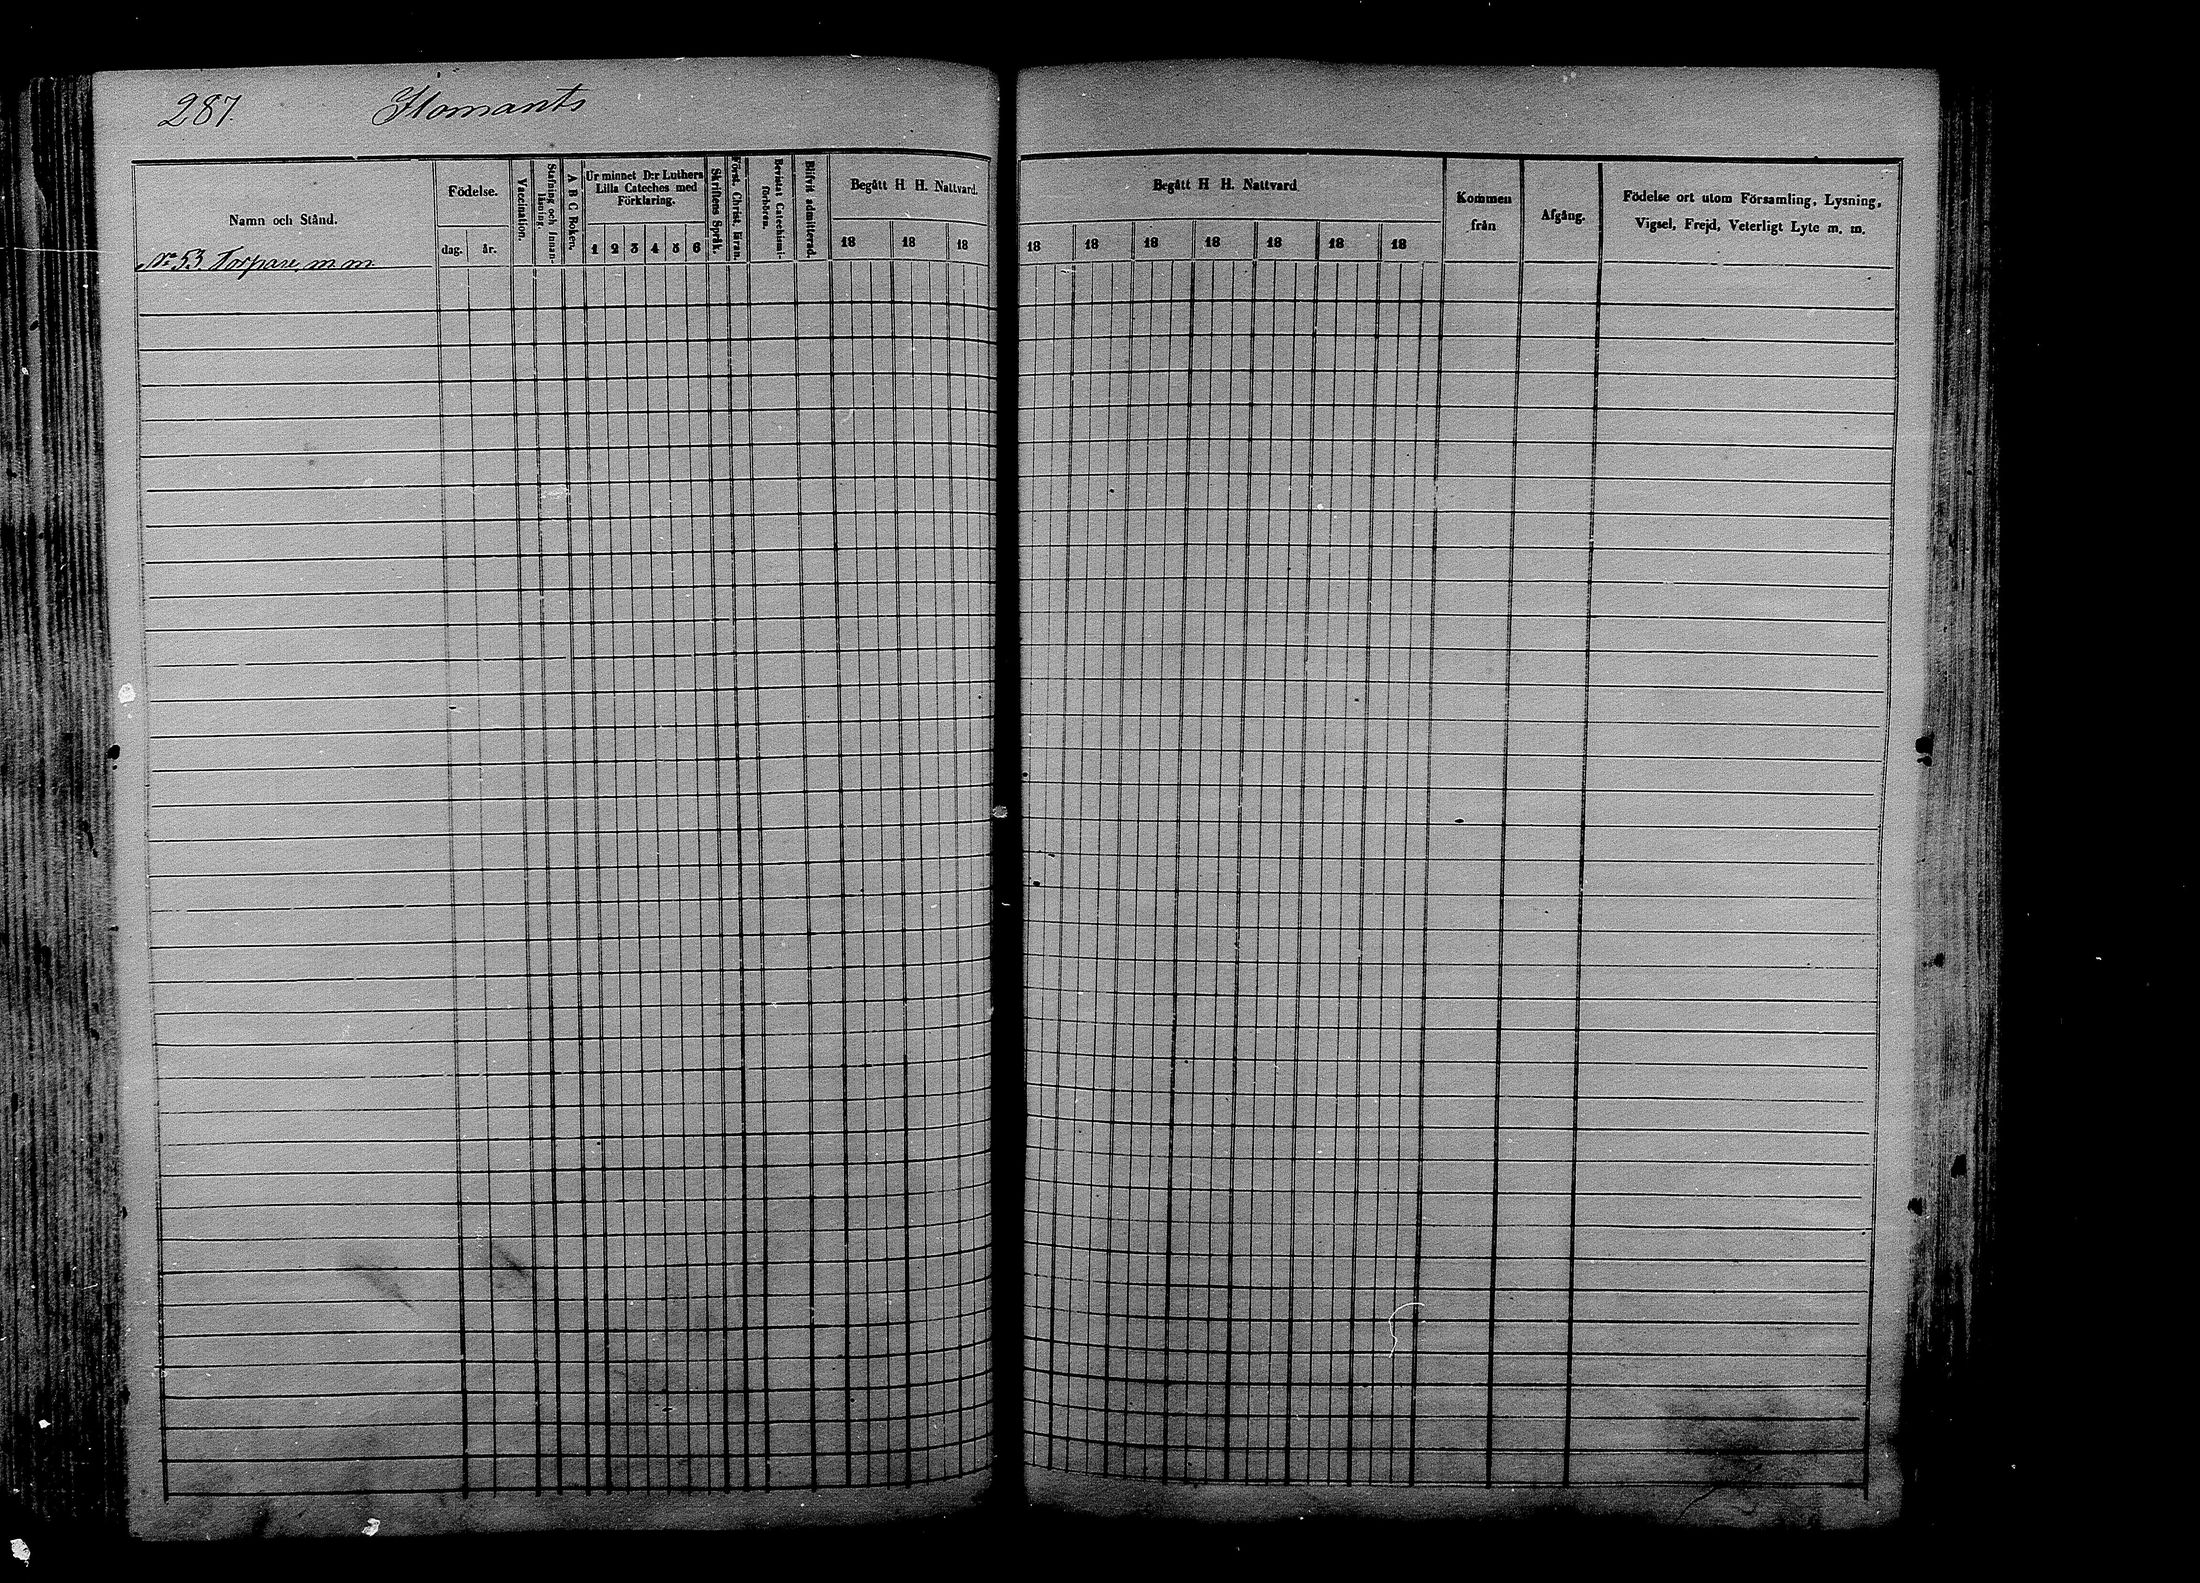 287. Ilomants
Namn och Stånd.
Födelse.
dag. år.
Vaccination.
Stafning och Innan-
läsning.
A B C Boken.
Ur minnet D:r Luthers
Lilla Cateches med
Förklaring.
1 2 3 4 5 6
Skriftens Språk.
Först. Christ. läran.
Bevistat Catechismi-
förhören.
Blifvit admitterad.
Begått H H. Nattvard.
18 18 18
Begått H H. Nattvard
18 18 18 18 18 18 18
Kommen
från
Afgång.
Födelse ort utom Församling, Lysning,
Vigsel, Frejd, Veterligt Lyte m. m.
No 53 Torpare m m